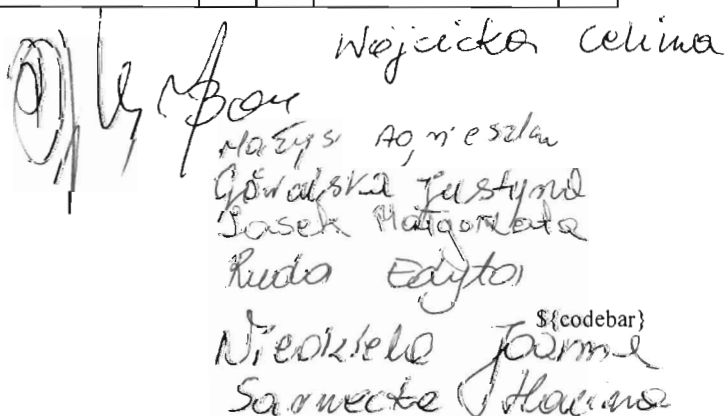 Wójcicka Celina
Małys Agnieszka
Góralska Justyna
Jasek Małgorzata
Ruda Edyta
${codebar}
Joanna
Sarnecka Halina